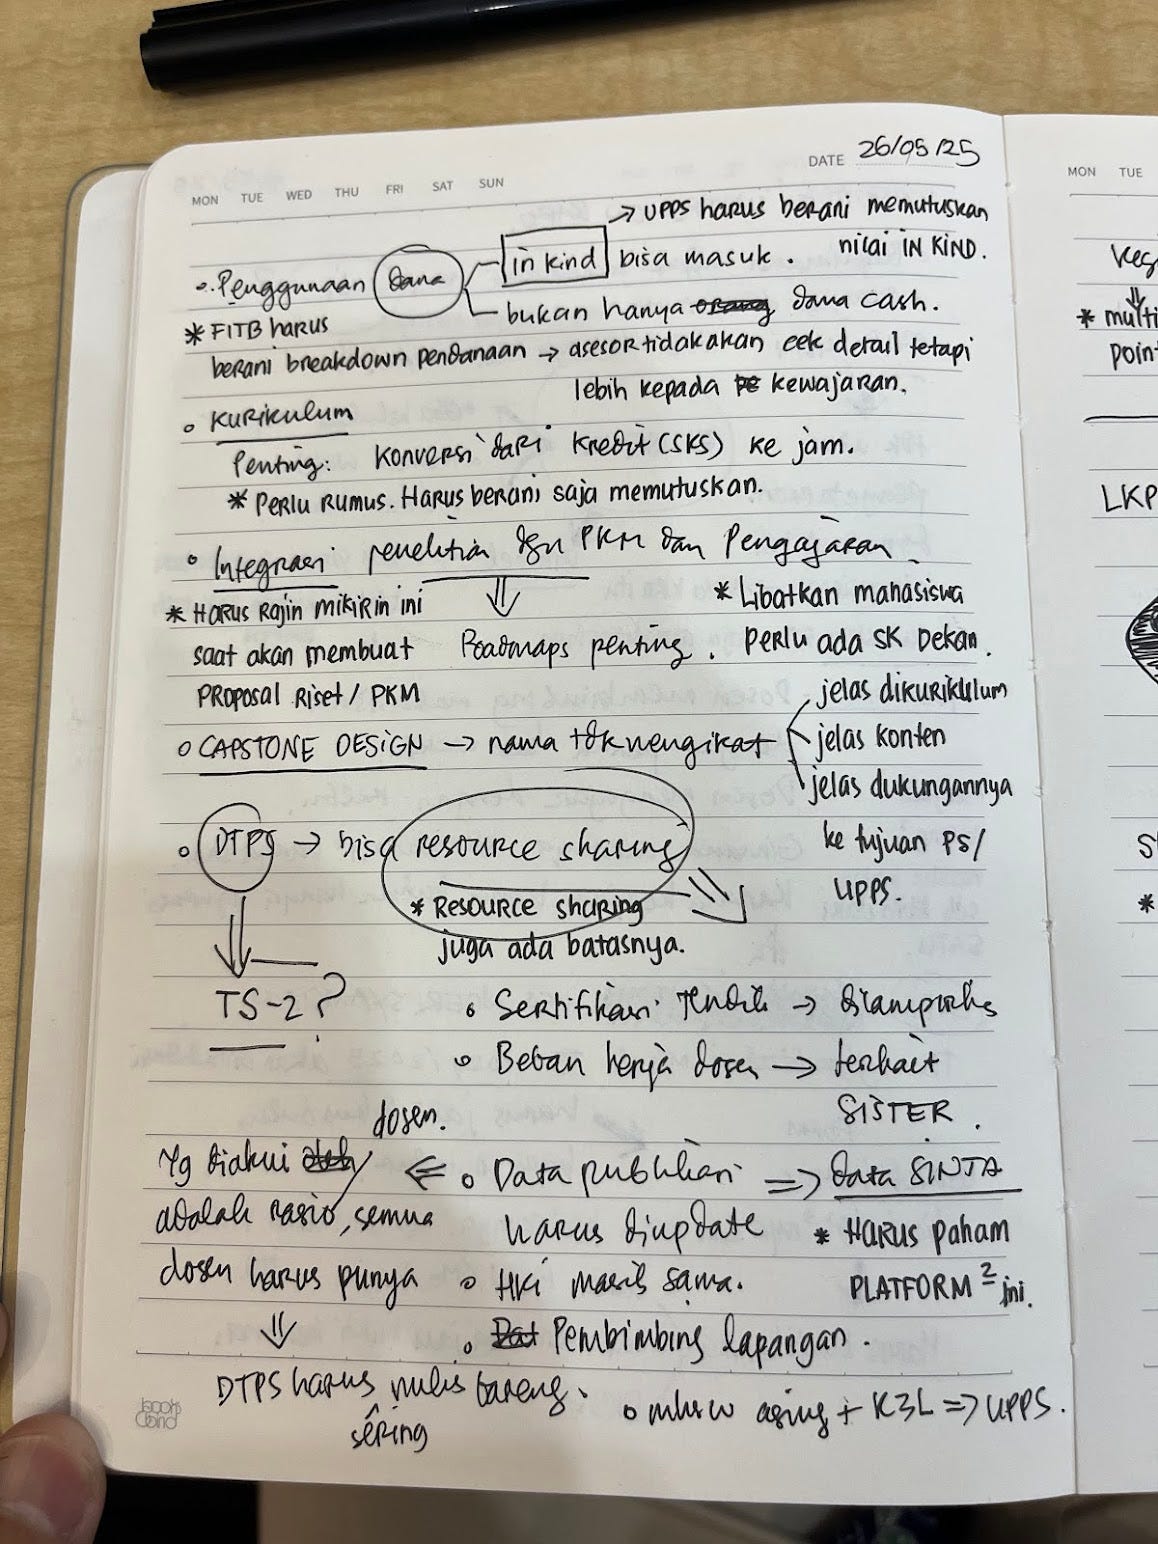 DATE 26/05/25
MON TUE WED THU FRI SAT SUN
→ UPPS harus berani memutuskan
nilai IN KIND.
in kind bisa masuk.
Penggunaan Dana
bukan hanya orang dana cash.
* FITB harus
berani breakdown pendanaan → asesor tidak akan cek detail tetapi
lebih kepada kewajaran.
o Kurikulum
Penting: Konversi dari Kredit (SKS) ke jam.
* Perlu Rumus. Harus berani saja memutuskan.
o Integrasi penelitian dgn PKM dan Pengajaran
⇓
* Harus Rajin mikirin ini
saat akan membuat
Proposal Riset / PKM
Roadmaps penting.
* Libatkan mahasiswa
Perlu ada SK Dekan.
o CAPSTONE DESIGN → nama tdk mengikat
jelas dikurikulum
jelas konten
jelas dukungannya
ke tujuan PS/
UPPS.
o DTPS → bisa resource sharing
* Resource sharing
juga ada batasnya.
⇓
TS-2?
o Sertifikasi Tendik →
o Beban kerja dosen → terkait
SISTER.
o Data publikasi ⇒ data SINTA
harus diupdate
* Harus paham
PLATFORM2 ini.
o HKI masih sama.
o Dat Pembimbing lapangan.
o mhsw asing + K3L ⇒ UPPS.
⇐
dosen.
Yg diakui oleh
adalah rasio, semua
dosen harus punya
⇓
DTPS harus nulis bareng.
^
sering
MON TUE
* multi
point
LKP
*